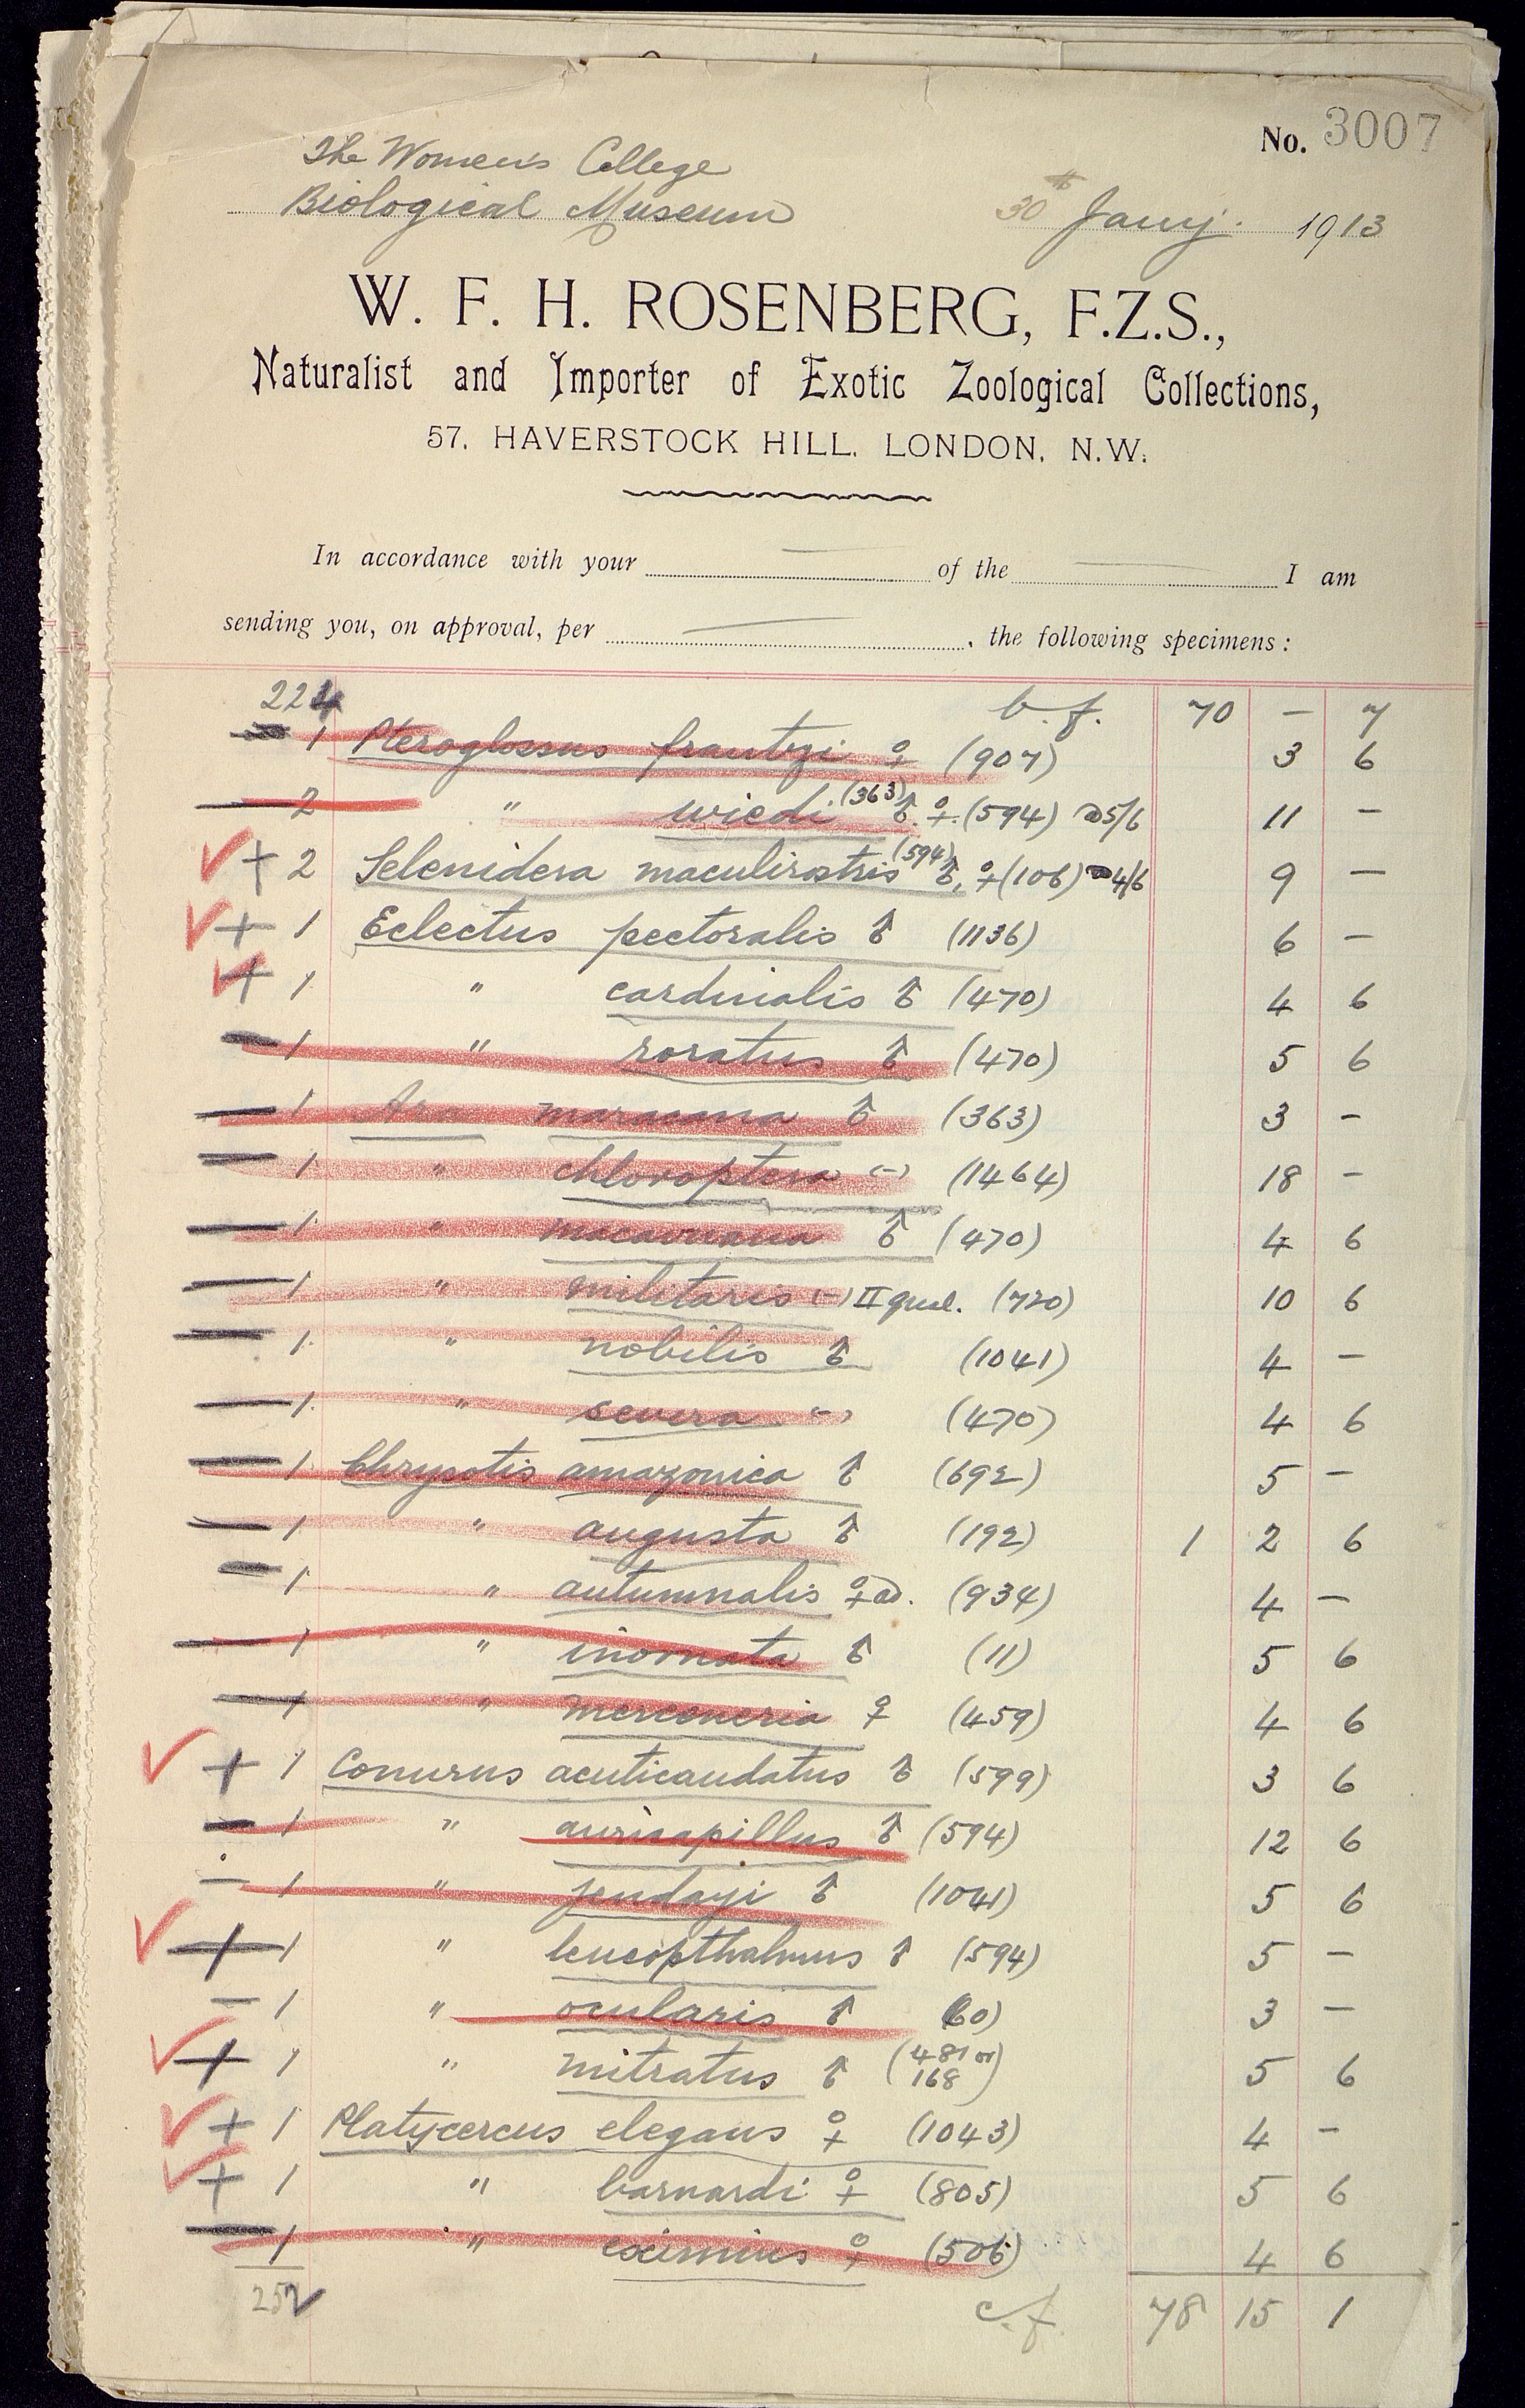 No. 3007
The Women's College
Biological Museum 30th Jany. 1913
W. F. H. ROSENBERG, F.Z.S.,
Naturalist and Importer of Exotic Zoological Collections,
57, HAVERSTOCK HILL, LONDON, N.W.
In accordance with your — of the — I am
sending you, on approval, per — , the following specimens:
224 b.f. 70 – 7
— 1 Pteroglossus frantzi ♀ (907) 3 6
— 2 " wiedi (363) ♂. ♀. (594) @5/6 11 –
✓ + 2 Selenidera maculirostris (594) ♂, ♀ (106) @4/6 9 –
✓ + 1 Eclectus pectoralis ♂ (1136) 6 –
✓ + 1 " cardinalis ♂ (470) 4 6
— 1 " roratus ♂ (470) 5 6
— 1 Ara maracana ♂ (363) 3 –
— 1 " chloroptera (–) (1464) 18 –
— 1 " macavuana ♂ (470) 4 6
— 1 " militaris (–) II qual. (720) 10 6
— 1 " nobilis ♂ (1041) 4 –
— 1 " severa (–) (470) 4 6
— 1 Chrysotis amazonica ♂ (692) 5 –
— 1 " augusta ♂ (192) 1 2 6
— 1 " autumnalis ♀ ad. (934) 4 –
— 1 " inornata ♂ (11) 5 6
— 1 " mercenaria ♀ (459) 4 6
✓ + 1 Conurus acuticaudatus ♂ (599) 3 6
— 1 " auricapillus ♂ (594) 12 6
— 1 " jendayi ♂ (1041) 5 6
✓ + 1 " leucopthalmus ♂ (594) 5 –
— 1 " ocularis ♂ (60) 3 –
✓ + 1 " mitratus ♂ (481 or 168) 5 6
✓ + 1 Platycercus elegans ♀ (1043) 4 –
✓ + 1 " barnardi ♀ (805) 5 6
— 1 " eximius ♀ (506) 4 6
252 ✓ c.f. 78 15 1